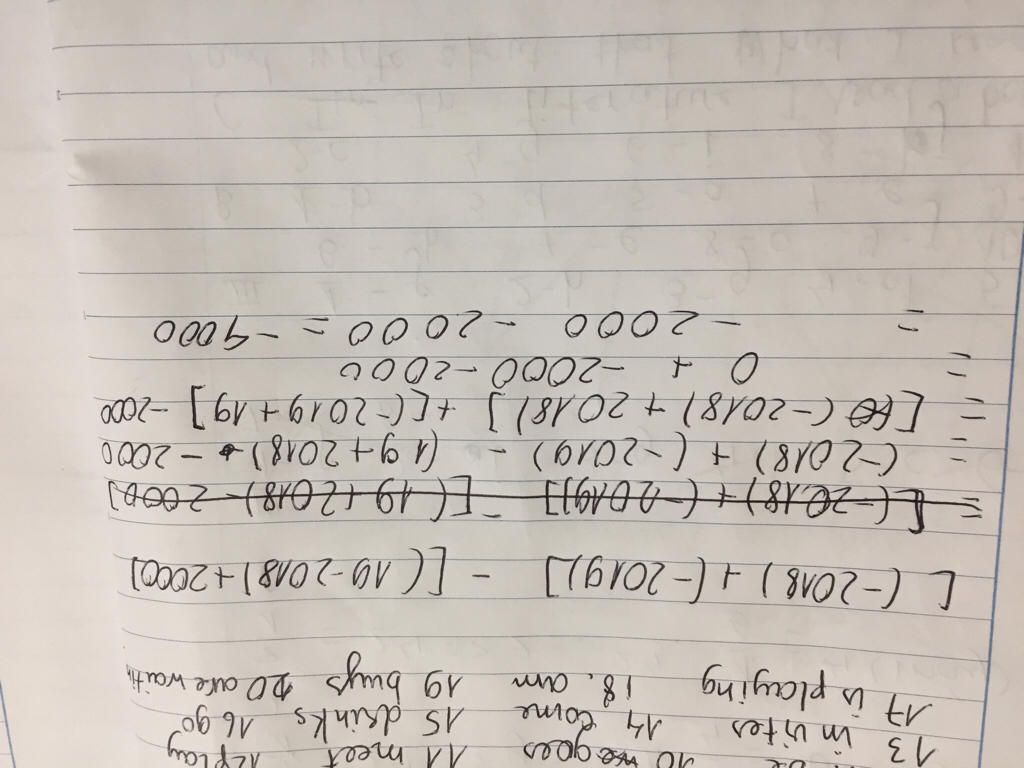 be 10 goes 11 meet 12 play
13 invites 14 come 15 drinks 16 go
17 is playing 18. am 19 buys 20 are waitin
[(-2018) + (-2019)] - [(19-2018)+2000]
= [(-2018)+(-2019)] - [(19+2018) - 2000]
= (-2018) + (-2019) - (19+2018) - 2000
= [(-2018) + 2018)] + [(-2019+19] -2000
= 0 + -2000 -2000
= -2000 - 2000 = -4000